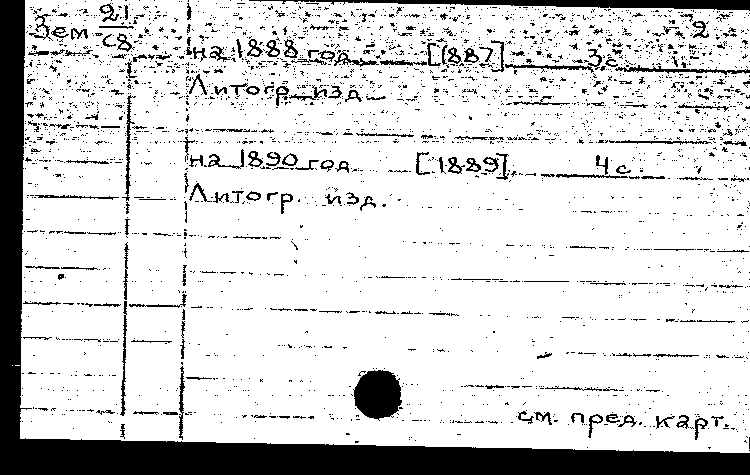 2
Зем 21/С8
на 1888 год [1887] 3с.
Литогр. изд.
на 1890 год [1889]. 4 с.
Литогр. изд.
см. пред. карт.